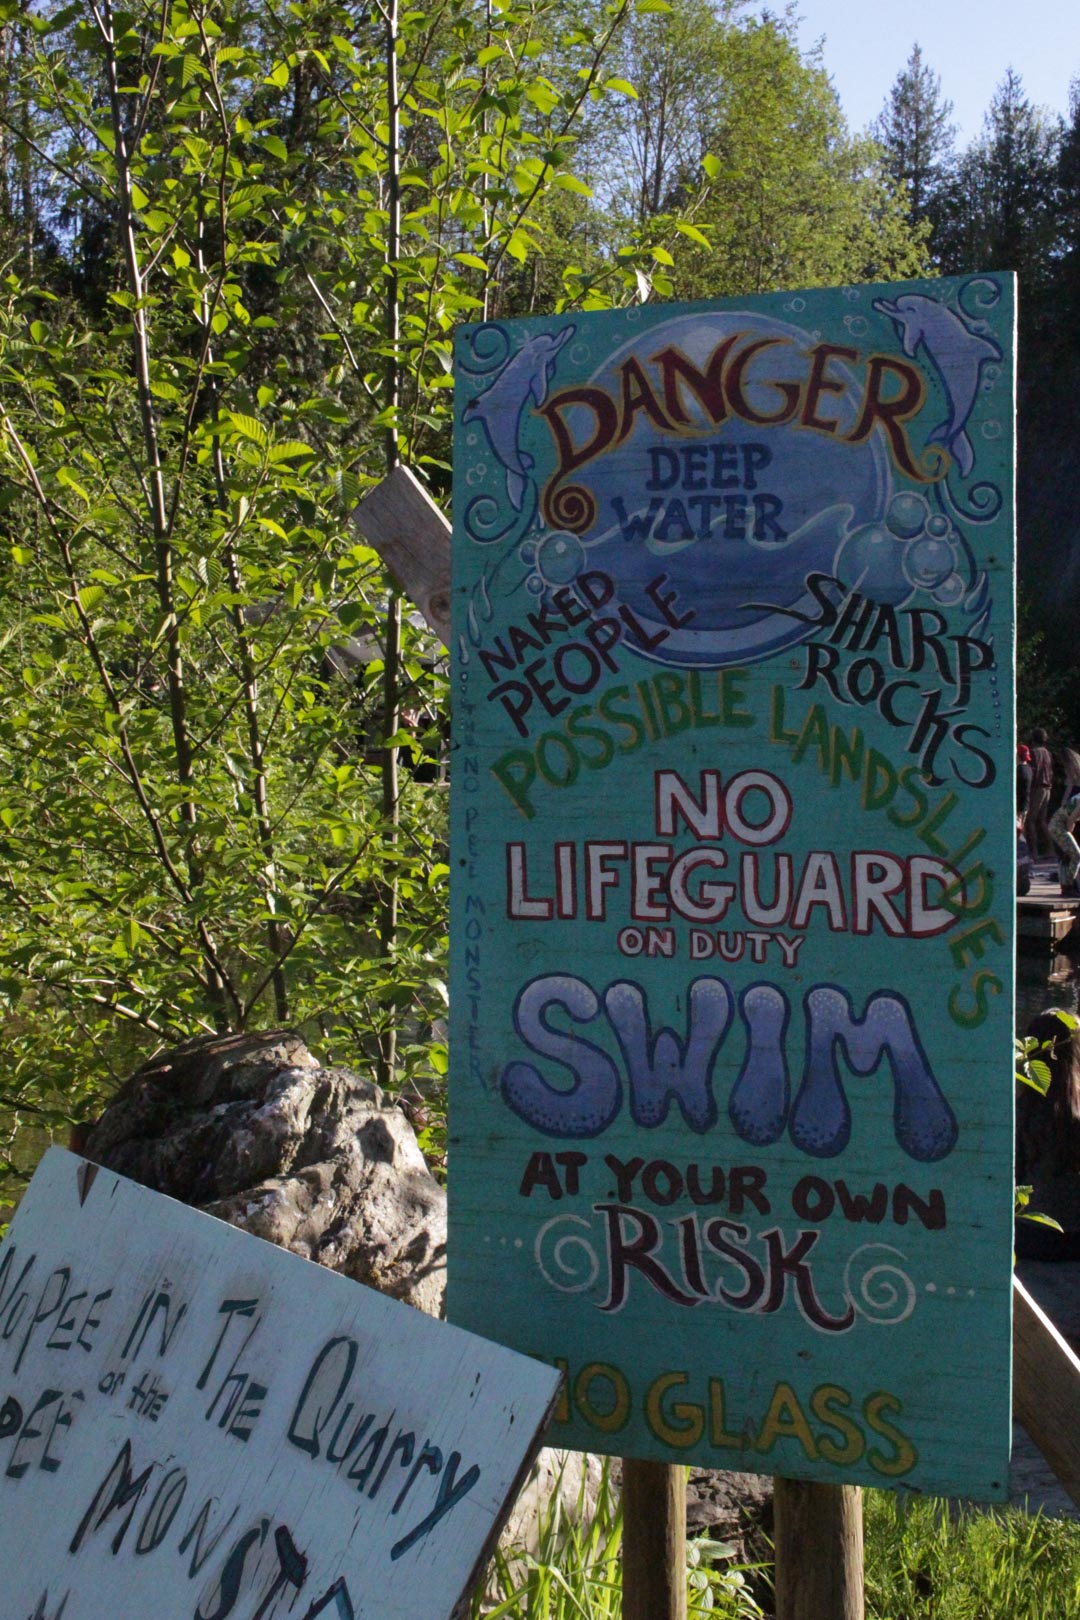 DANGER
DEEP
WATER
NAKED
PEOPLE
SHARP
ROCKS
POSSIBLE LANDSLIDES
NO
LIFEGUARD
ON DUTY
SWIM
AT YOUR OWN
RISK
NO GLASS
NO PEE MONSTER
No PEE IN The Quarry
or the
PEE MONST